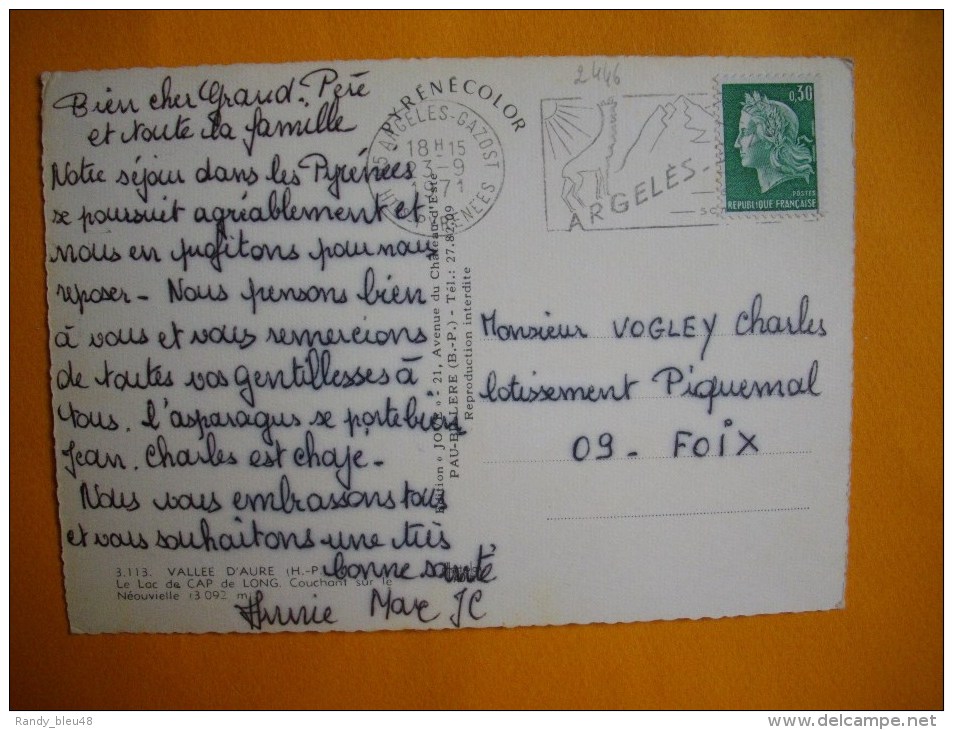 Bien cher Grand-Père
et toute la famille
Notre séjour dans les Pyrénées
se poursuit agréablement et
nous en profitons pour nous
reposer - Nous pensons bien
à vous et vous remercions
de toutes vos gentillesses à
tous. l'asparagus se porte bien
Jean. Charles est
Nous vous embrassons tous
et vous souhaitons une très
bonne santé
Annie Marc JC
3.113. VALLEE D'AURE (H.-P
Le Lac de CAP de LONG. Couchant sur le
Néouvielle (3.092 m
PYRENECOLOR
Edition « JOVE » - 21, Avenue du Château-d'Este
PAU-BILLERE (B.-P.) - Tél.: 27.82.09
Reproduction interdite
2446
65 ARGELES-GAZOST
18 H 15
23 - 9
1971
PYRENEES
ARGELÈS-
0,30
POSTES
REPUBLIQUE FRANÇAISE
Monsieur VOGLEY Charles
lotissement Piquemal
09 - FOIX
Randy_bleu48
www.delcampe.net